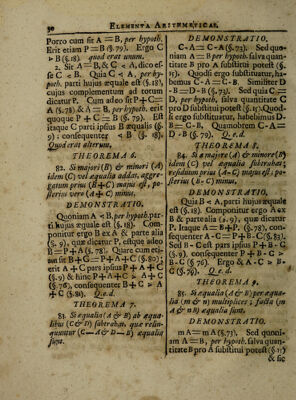 30 ELEMENTA ARITHMETICAE.
Porro cum sit A = B, per hypoth.
Erit etiam P = B (§. 79). Ergo C
> B (§. 18). quod erat unum.
2. Sit A = B, & C < A, dico esse
se C < B. Quia C < A, per hypoth.
parti hujus æquale est (§. 18),
cujus complementum ad totum
dicatur P. Cum adeo sit P + C =
A (§. 78.) & A = B, per hypoth. erit
quoque P + C = B (§. 79). Est
itaque C parti ipsius B æqualis (§.
9): consequenter < B (§. 18).
Quod erat alterum.
THEOREMA 6.
82. Si majori (B) & minori (A)
idem (C) vel æqualia addas, aggregatum
prius (B+C) majus est, posterius
vero (A+C) minus.
DEMONSTRATIO.
Quoniam A < B, per hypoth. parti
hujus æquale est (§. 18). Componitur
ergo B ex A & parte alia
(§. 9), quæ dicatur P, estque adeo
B = P + A (§. 78). Quare cum etiam
sit B + C = P + A + C (§. 80);
erit A + C pars ipsius P + A + C
(§. 9) & hinc P + A + C > A + C
(§. 76), consequenter B + C > A
+ C (§. 81). Q. e. d.
THEOREMA 7.
83. Si æqualia (A & B) ab æqualibus
(C & D) subtrahas, quæ relinquuntur
(C—A & D—B) æqualia
sunt.
DEMONSTRATIO.
C-A = C-A (§. 73). Sed quoniam
A = B per hypoth. salva quantitate
B pro A substitui potest (§.
15). Quodsi ergo substituatur, habemus
C-A = C-B. Similiter D
-B = D-B (§. 73). Sed quia C =
D, per hypoth. salva quantitate C
pro D substitui potest (§. 15): Quodsi
ergo substituatur, habebimus D-
B = C-B. Quamobrem C-A =
D-B (§. 79). Q. e. d.
THEOREMA 8.
84. Si a majore (A) & minore (B)
idem (C) vel æqualia subtrahas;
residuum prius (A-C) majus est; posterius
(B-C) minus.
DEMONSTRATIO.
Quia B < A, parti hujus æquale
est (§. 18). Componitur ergo A ex
B & parte alia (§. 9), quæ dicatur
P. Itaque A = B + P (§. 78), consequenter
A-C = P + B-C (§. 83).
Sed B-C est pars ipsius P + B-C
(§. 9), consequenter P + B-C >
B-C (§. 76). Ergo & A-C > B-
C (§. 79). Q. e. d.
THEOREMA 9.
85. Si æqualia (A & B) per æqualia
(m & n) multiplices; facta (m
A & n B) æqualia sunt.
DEMONSTRATIO.
m A = m A (§. 71). Sed quoniam
A = B, per hypoth. salva quantitate
B pro A substitui potest (§. 15)
& sic